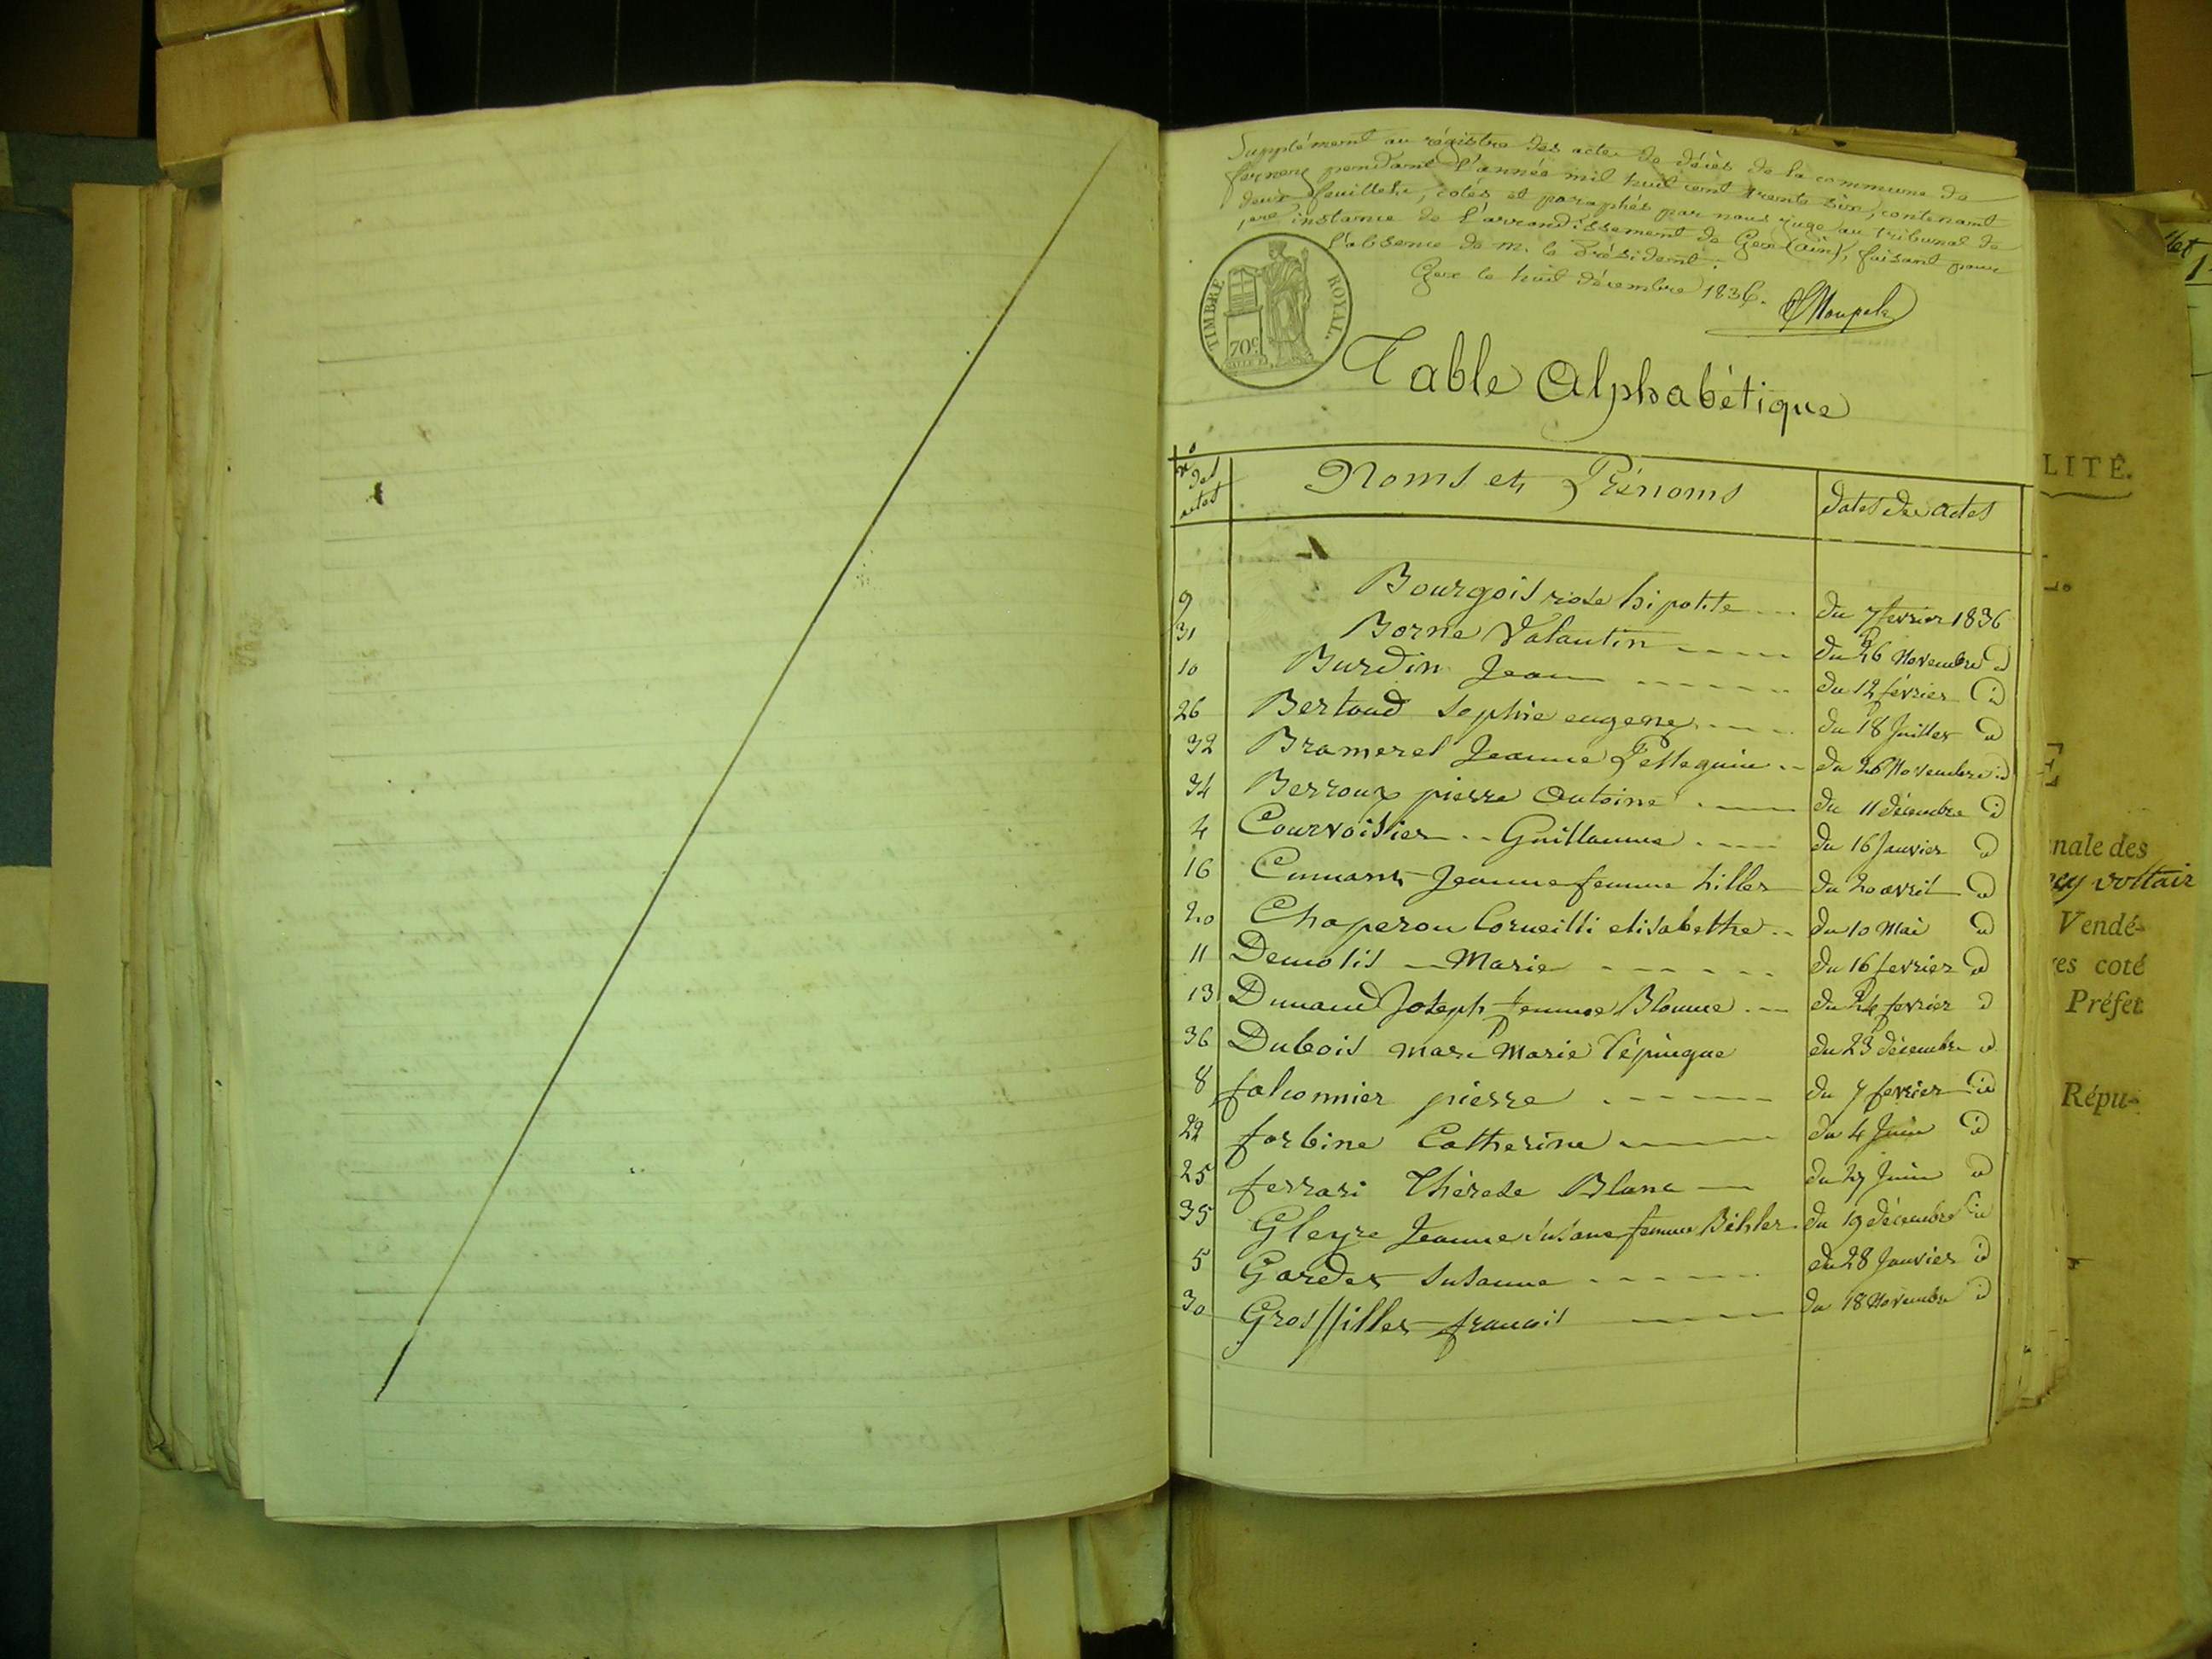 Supplément au régistre des actes de décès de la commune de
ferney pendant l'année mil huit cent trente six, contenant
deux feuillets, cotés et paraphés par nous juge au tribunal de
1ere instance de l'arrondissement de Gex (ain), faisant pour
l'absence de m. le Président.
Gex le huit décembre 1836.
TIMBRE ROYAL.
70c
Table Alphabétique
No des actes Noms et Prénoms dates des actes
9 Bourgois rose hipolite du 7 fevrier 1836
31 Borne Valantin du 26 Novembre id
10 Burdin Jean du 12 février id
26 Bertoud Sophie eugene du 18 Juillet id
32 Bramerel Jeanne du 26 Novembre id
34 Berroux pierre Antoine du 11 décembre id
4 Courvoisier Guillaume du 16 Janvier id
16 Jeanne femme hiller du 20 avril id
20 Chaperon Corneilli elisabethe du 10 Mai id
11 Demolis Marie du 16 fevrier id
13 Dunand Joseph femme Blonne du 24 fevrier id
36 Dubois marc Marie l'épingue du 23 décembre id
8 falconnier pierre du 7 fevrier id
22 forbine Catherine du 4 Juin id
25 ferrari Thérese Blanc du 27 Juin id
35 Gleyre Jeanne Susane femme Bihler du 19 décembre id
5 Gardet Susanne du 28 Janvier id
30 Grosffiller francois du 18 Novembre id
LITÉ.
nale des
ney voltair
Vendé-
res coté
Préfet
Répu-